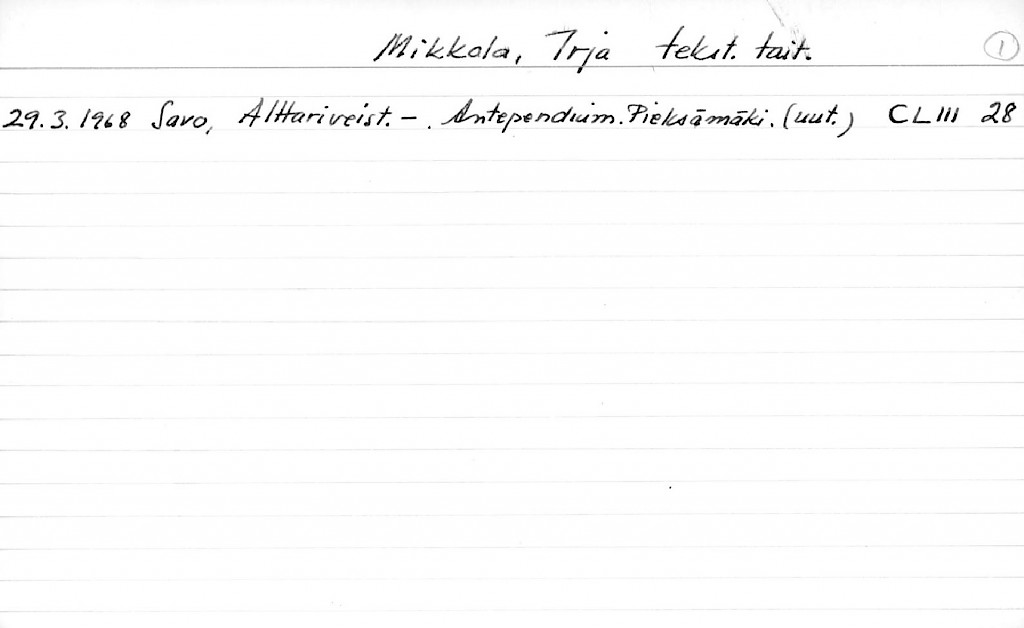 Mikkola, Irja tekst. tait. 1
29.3.1968 Savo, Alttariveist. - . Antependium. Pieksämäki. (uut.) CLIII 28